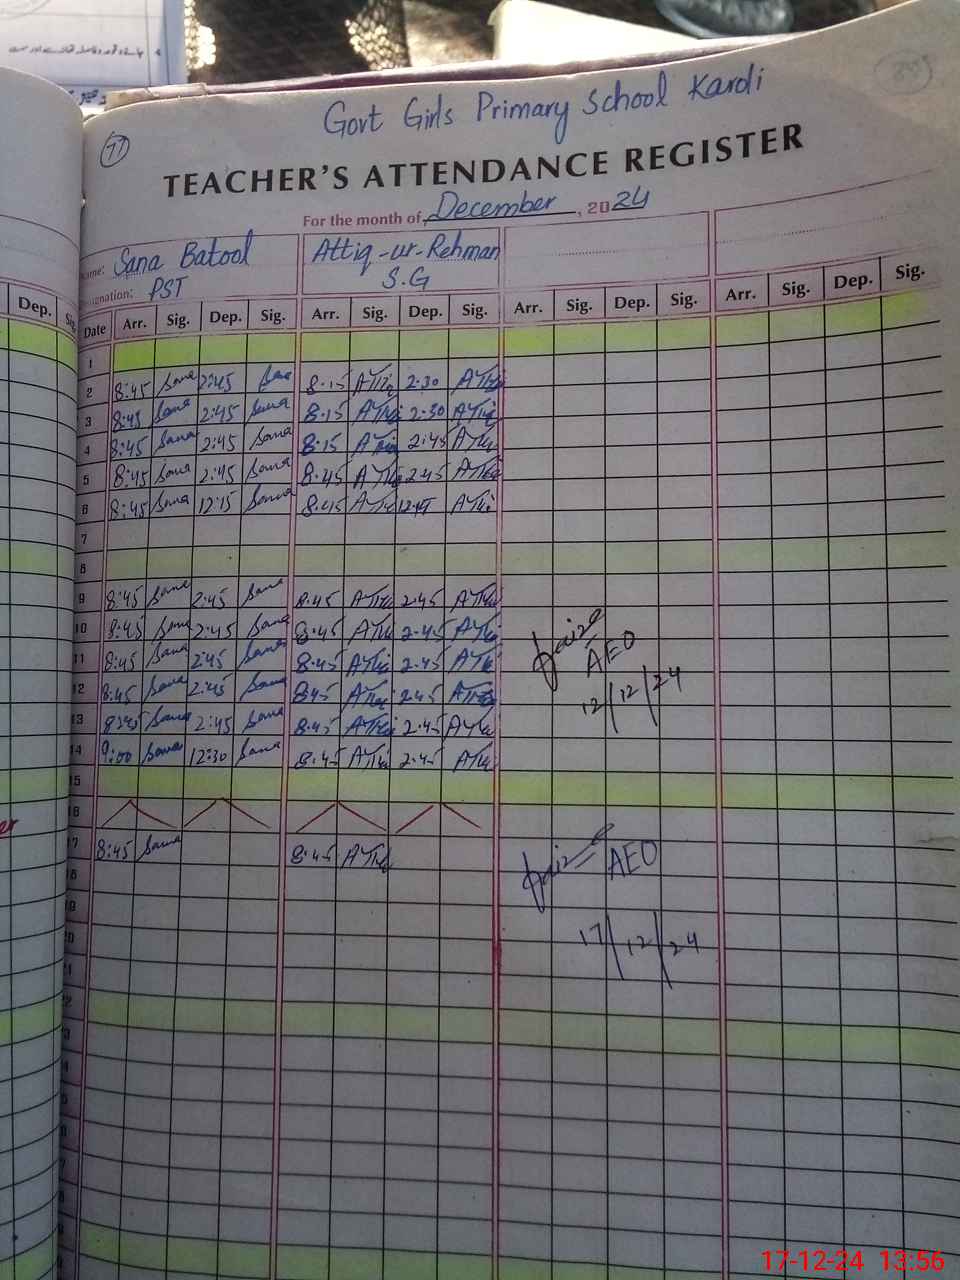 Govt Girls Primary School Kardi
77
TEACHER'S ATTENDANCE REGISTER
For the month of December, 2024
Name: Sana Batool Attiq-ur-Rehman
Designation: PST S.G
Dep. Sig.
Date Arr. Sig. Dep. Sig. Arr. Sig. Dep. Sig. Arr. Sig. Dep. Sig. Arr. Sig. Dep. Sig.
1
2 8:45 Sana 2:45 Sana 8.15 ATTiq 2.30 ATTiq
3 8:45 Sana 2:45 Sana 8.15 ATTiq 2.30 ATTiq
4 8:45 Sana 2:45 Sana 8:15 ATTiq 2.45 ATTiq
5 8:45 Sana 2:45 Sana 8.45 ATTiq 2.45 ATTiq
6 8:45 Sana 12:15 Sana 8.45 ATTiq ATTiq
7
8
9 8:45 Sana 2:45 Sana 8.45 ATTiq 2.45 ATTiq
10 8:45 Sana 2:45 Sana 8.45 ATTiq 2.45 ATTiq
11 8:45 Sana 2:45 Sana 8.45 ATTiq 2.45 ATTiq
AEO
12 8:45 Sana 2:45 Sana 8.45 ATTiq 2.45 ATTiq
12/12/24
13 8:45 Sana 2:45 Sana 8.45 ATTiq 2.45 ATTiq
14 9:00 Sana 12:30 Sana 8.45 ATTiq 2.45 ATTiq
15
16
17 8:45 Sana 8.45 ATTiq
AEO
18
19
17/12/24
20
21
22
23
17-12-24 13:56